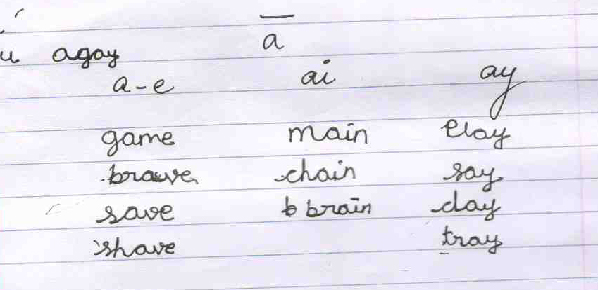 ā
agay
a-e ai ay
game main clay
brave chain say
save b brain day
shave tray